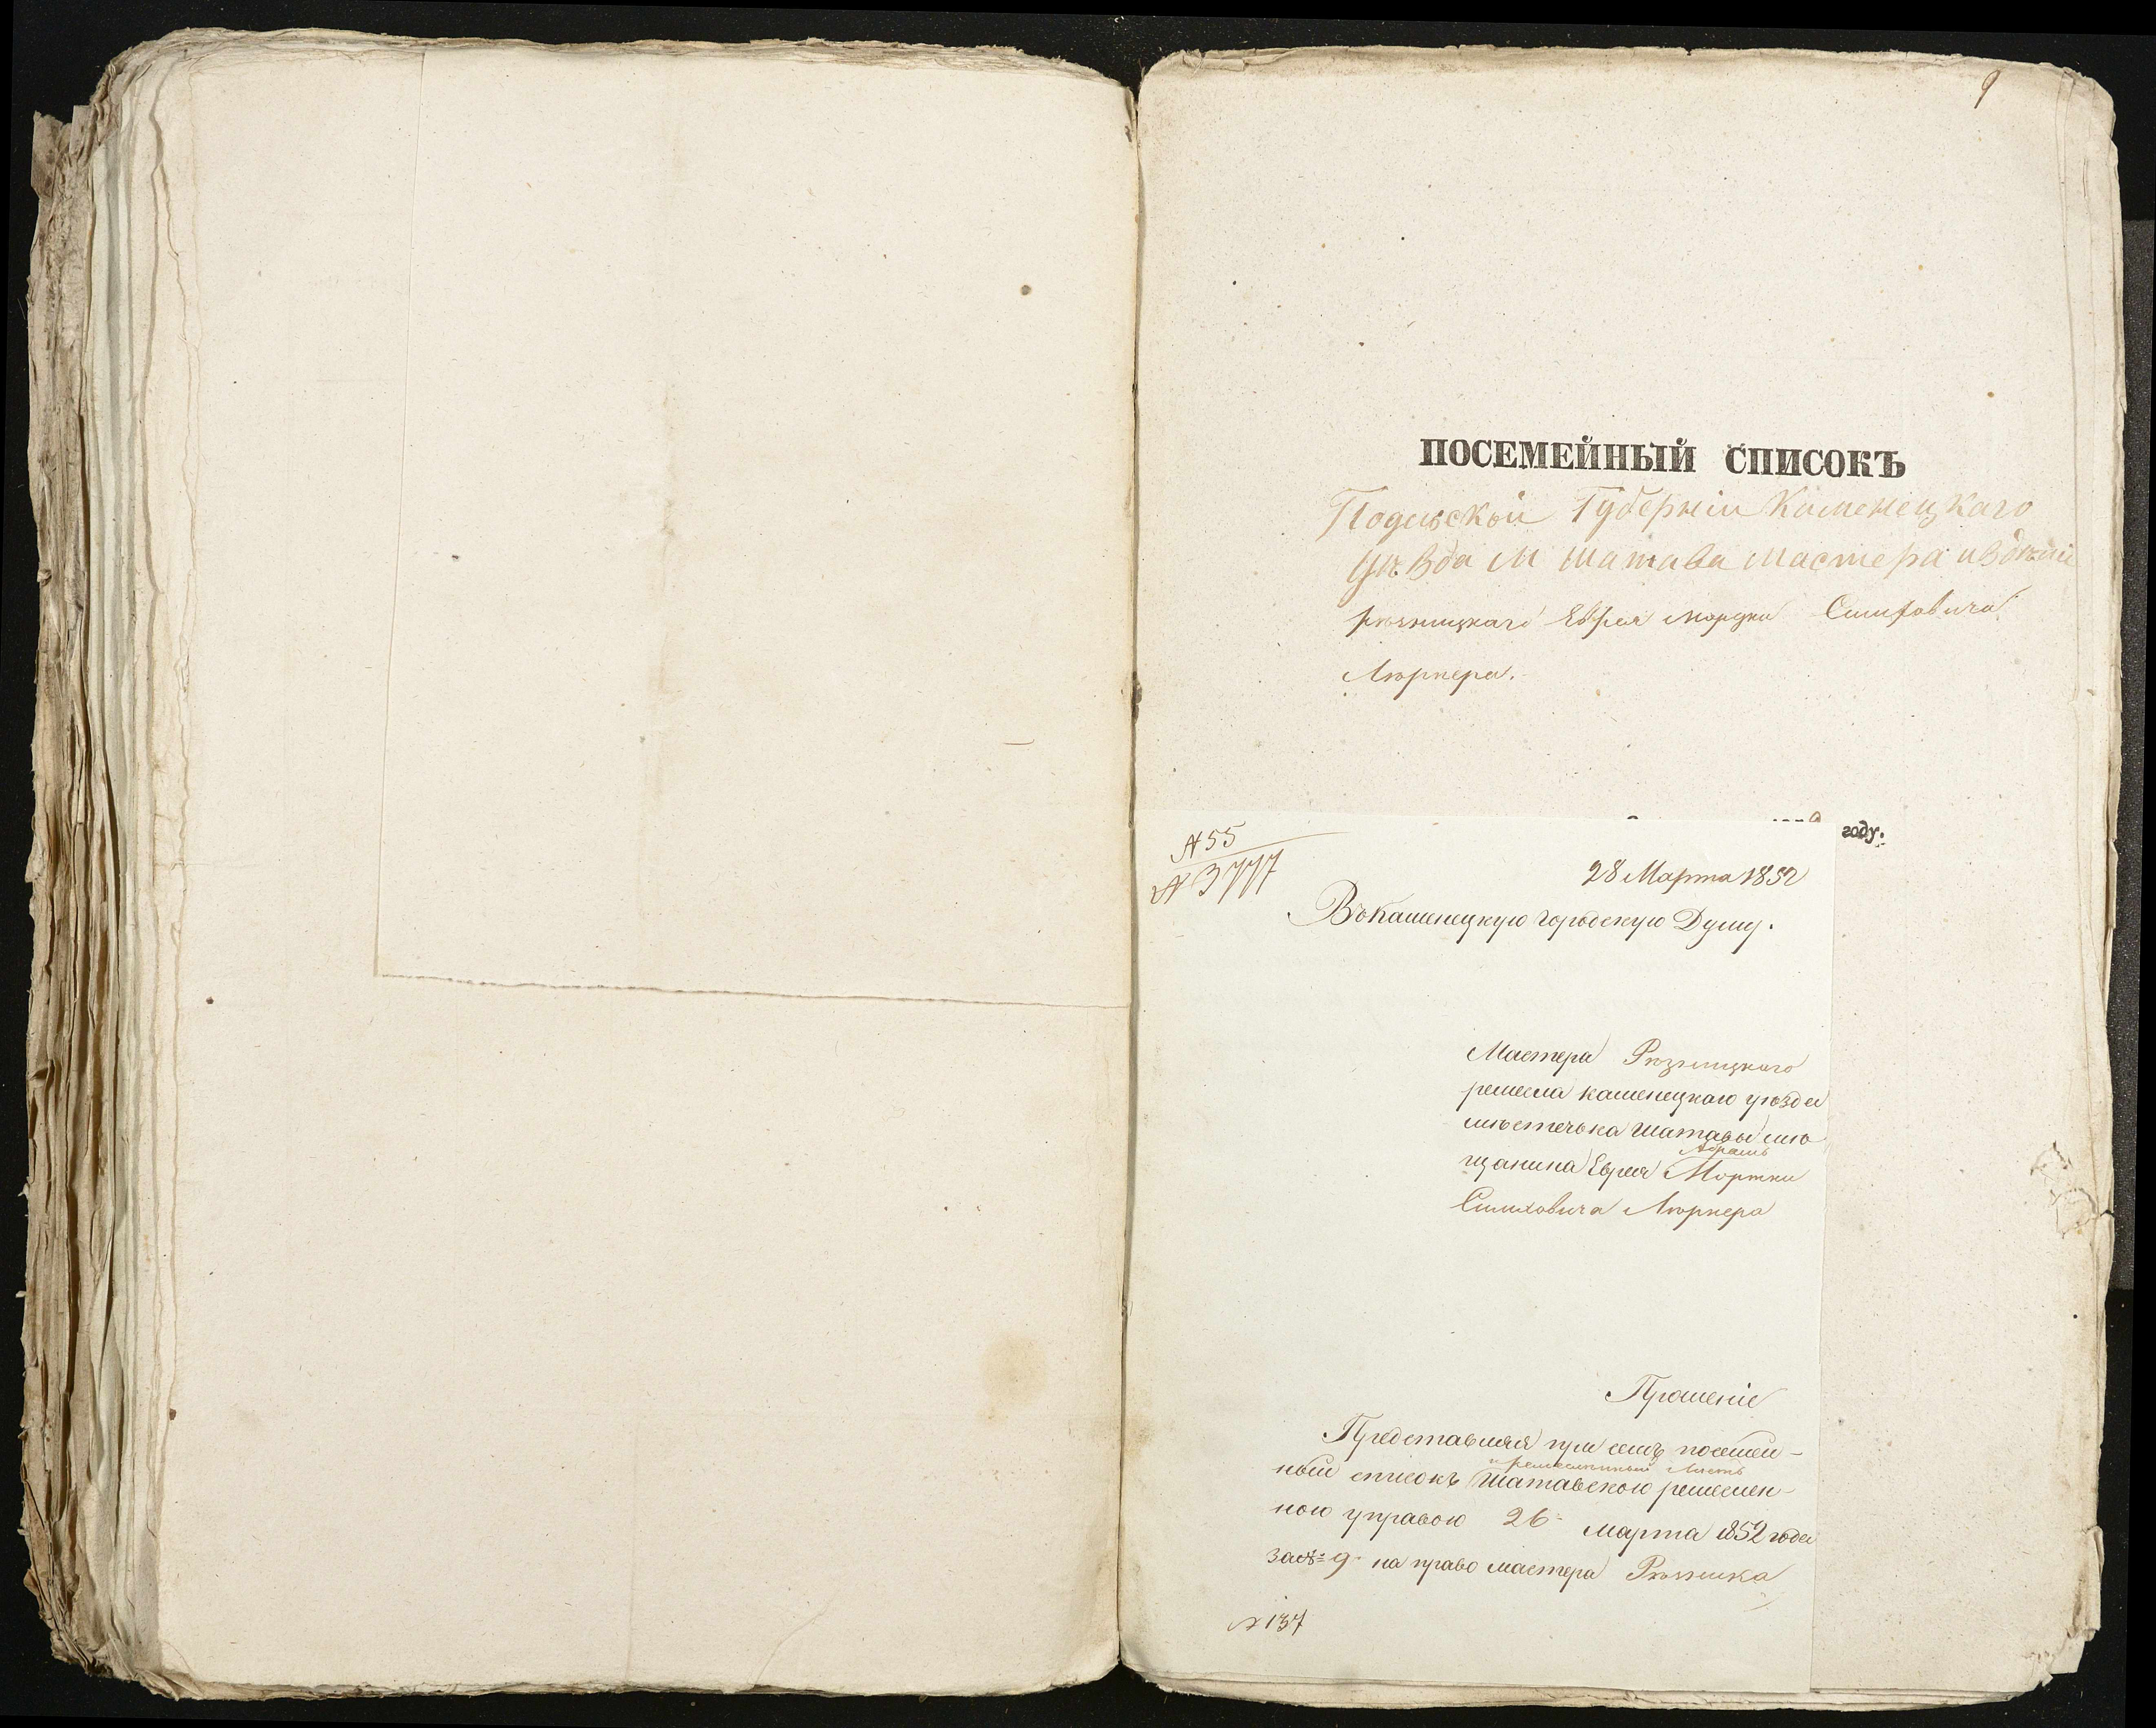 9
ПОСЕМЕЙНЫЙ СПИСОКЪ
Подольской Губерніи Каменецкаго
Уѣзда М Шатава Мастера
рѣзницкаго Еврея Мордки Симховича
Лернера.
году:
№ 55
№ 3777
28 Марта 1852
Въ Каменецкую городскую Думу.
Мастера Рѣзницкаго
ремесла каменецкаго уѣзда
мѣстечька Шатавы мѣ
Абрамъ
щанина Еврея Мортки
Симховича Лернера
Прошеніе
Представляя при семъ посемей-
и ремесленный листъ
ный списокъ Шатавскою ремеслен-
ною управою 26 марта 1852 года
за №= 9. на право мастера Рѣзника
№ 137